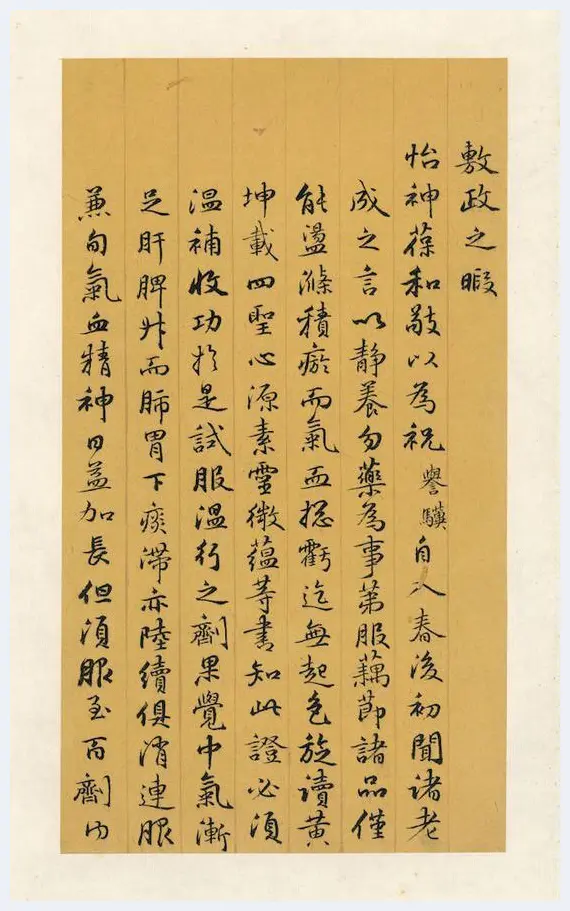 敷政之暇
怡神葆和敬以為祝譽驥自入春後初聞諸老
成之言以靜養勿藥為事第服藕節諸品僅
能盪滌積瘀而氣血捴虧迄無起色旋讀黃
坤載四聖心源素靈微蘊等書知此證必須
溫補收功於是試服溫行之劑果覺中氣漸
足肝脾升而肺胃下痰滯亦陸續俱消連服
兼旬氣血精神日益加長但須服至百劑內